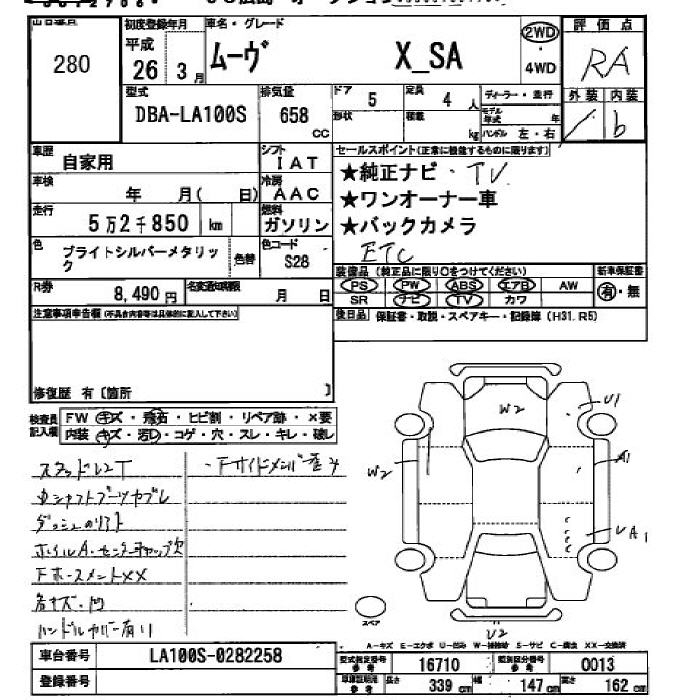 出品番号 280
初度登録年月 平成 26年 3月
車名・グレード ムーヴ X_SA
2WD
4WD
評価点 RA
外装 内装 b
型式 DBA-LA100S
排気量 658 CC
ドア 5
定員 4 人
形状
積載 kg
ディーラー・並行
モデル年式 年
ハンドル 左・右
車歴 自家用
シフト IAT
車検 年 月( 日)
冷房 AAC
走行 5万2千850 km
燃料 ガソリン
色 ブライトシルバーメタリック
色替
色コード S28
R券 8,490 円
名変通知期限 月 日
セールスポイント(正常に機能するものに限ります)
★純正ナビ・TV
★ワンオーナー車
★バックカメラ
ETC
装備品 (純正品に限り○をつけてください)
新車保証書
PS PW ABS エアB AW
有・無
SR ナビ TV カワ
後日品 保証書・取説・スペアキー・記録簿 (H31,R5)
注意事項申告欄 (不具合内容等は具体的に記入して下さい)
修復歴 有〔箇所 〕
検査員記入欄
FW キズ・飛石・ヒビ割・リペア跡・×要
内装 キズ・汚レ・コゲ・穴・スレ・キレ・破レ
スタッドレスT
・Fサイドメンバ歪ミ
ダッシュのリフト
ホイルA・センターキャップ欠
各キズ・凹
ハンドルカバー有り
W2
U1
W2
A1
UA1
U2
スペア
A-キズ E-エクボ U-凹ミ W-補修跡 S-サビ C-腐食 XX-交換済
車台番号 LA100S-0282258
登録番号
型式指定番号 参考 16710
類別区分番号 参考 0013
車庫証明用 参考 長さ 339 cm 幅 147 cm 高さ 162 cm